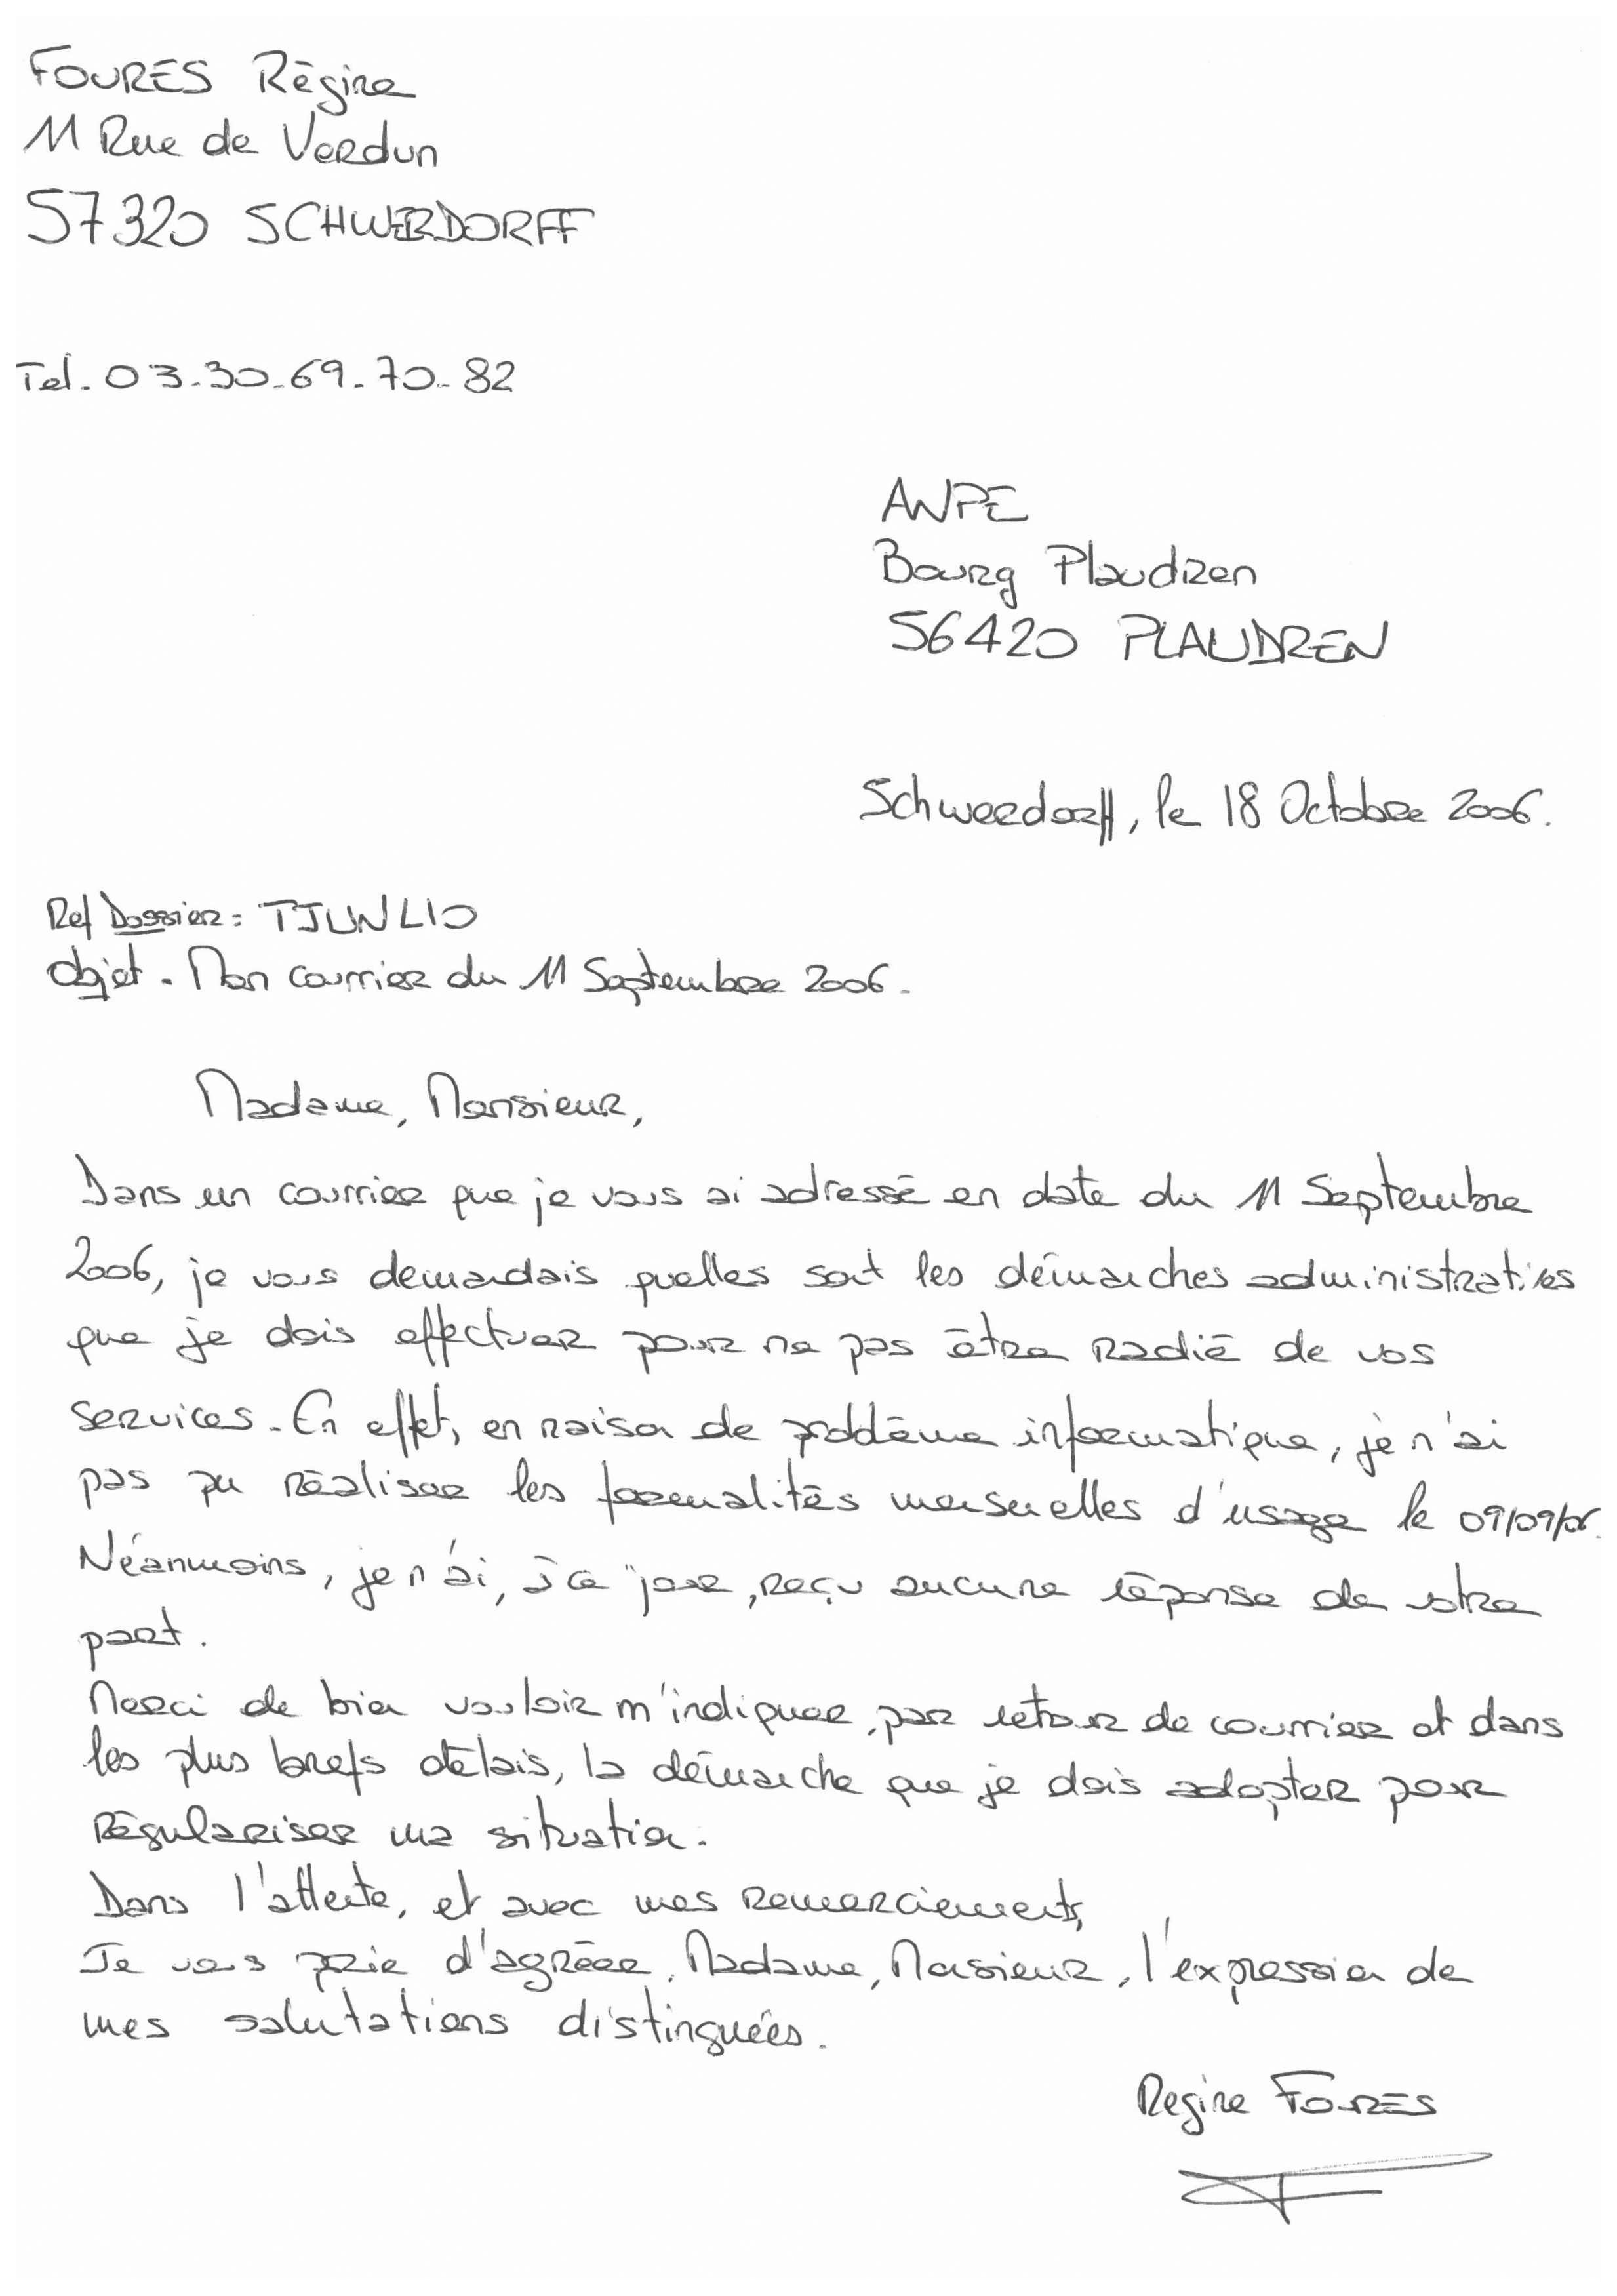 FOURES Régine
11 Rue de Verdun
57320 SCHWERDORFF
Tel. 03.30.69.70.82
ANPE
Bourg Plaudren
56420 PLAUDREN
Schwerdorff, le 18 Octobre 2006.
Ref Dossier : TJUNL10
Objet. Mon courrier du 11 Septembre 2006.
Madame, Monsieur,
Dans un courrier que je vous ai adressé en date du 11 Septembre
2006, je vous demandais quelles sont les démarches administratives
que je dois effectuer pour ne pas être radié de vos
services. En effet, en raison de problème informatique, je n'ai
pas pu réaliser les formalités mensuelles d'usage le 09/09/06.
Néanmoins, je n'ai, à ce jour, reçu aucune réponse de votre
part.
Merci de bien vouloir m'indiquer, par retour de courrier et dans
les plus brefs délais, la démarche que je dois adopter pour
régulariser ma situation.
Dans l'attente, et avec mes remerciements,
Je vous prie d'agréer, Madame, Monsieur, l'expression de
mes salutations distinguées.
Regine FOURES